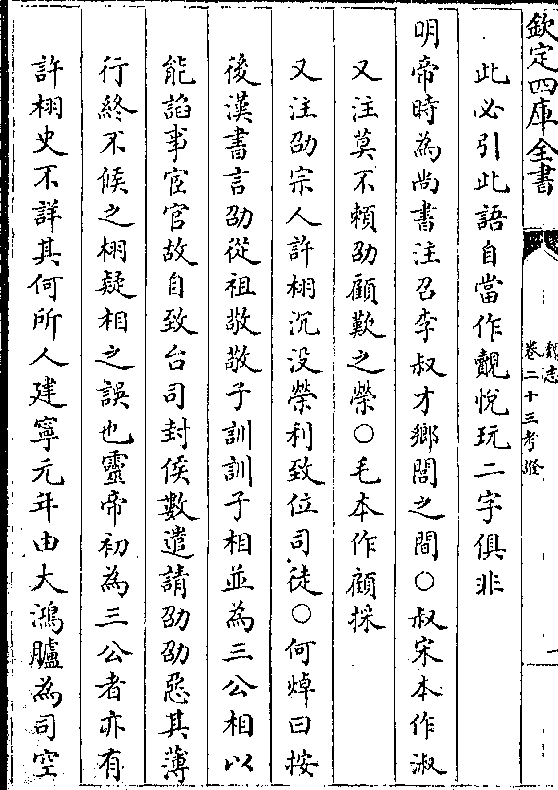 欽定四庫全書
魏志
卷二十三考證
此必引此語自當作覿悅玩二字俱非
明帝時為尚書注召李叔才鄉閭之間○叔宋本作淑
又注莫不賴劭顧歎之榮○毛本作顧採
又注劭宗人許栩沉没榮利致位司徒○何焯曰按
後漢書言劭從祖敬敬子訓訓子相並為三公相以
能諂事宦官故自致台司封侯數遣請劭劭惡其薄
行終不候之栩疑相之誤也靈帝初為三公者亦有
許栩史不詳其何所人建寧元年由大鴻臚為司空